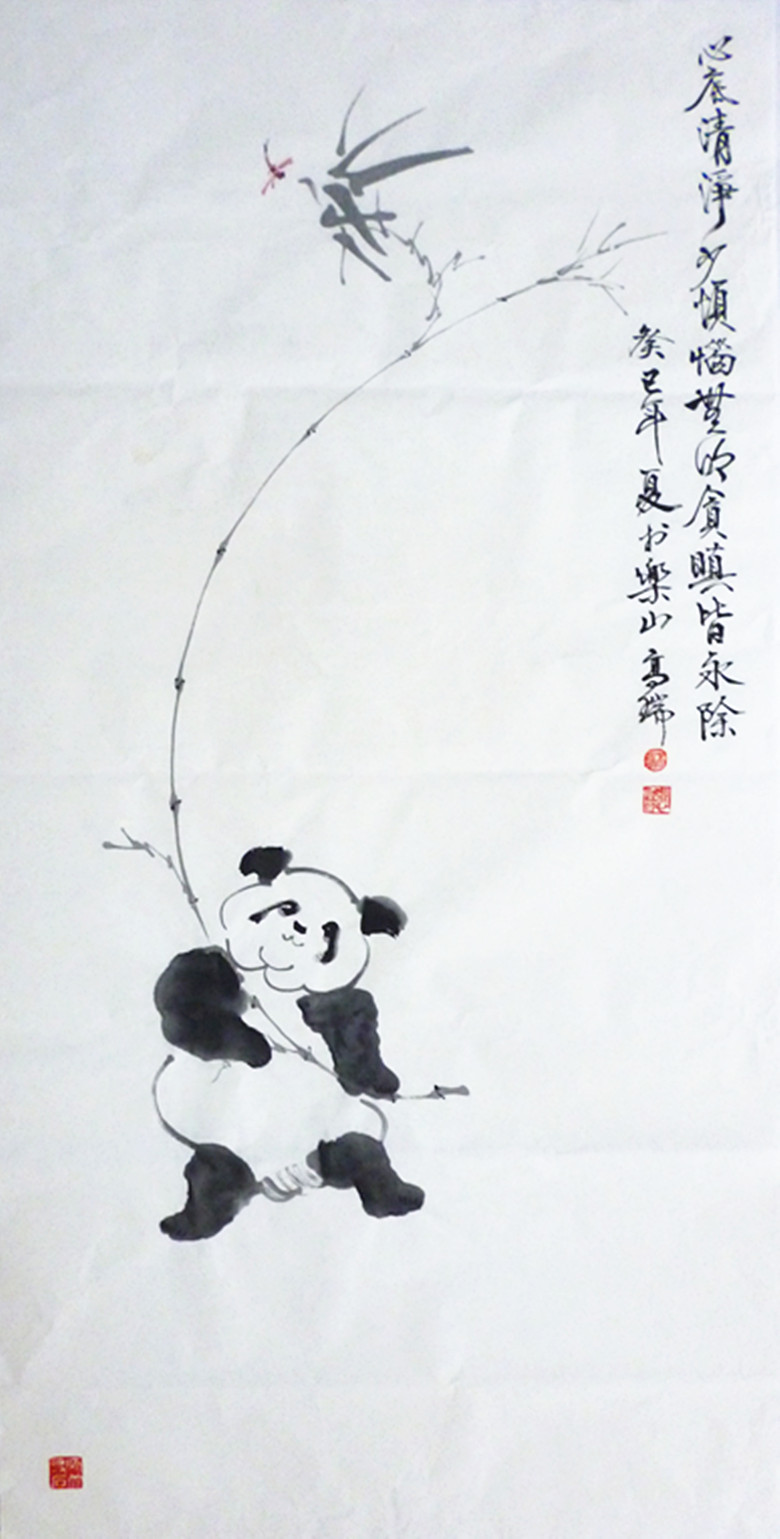 心底清淨少煩惱無明貪瞋皆永除
癸巳年夏於樂山高瑞